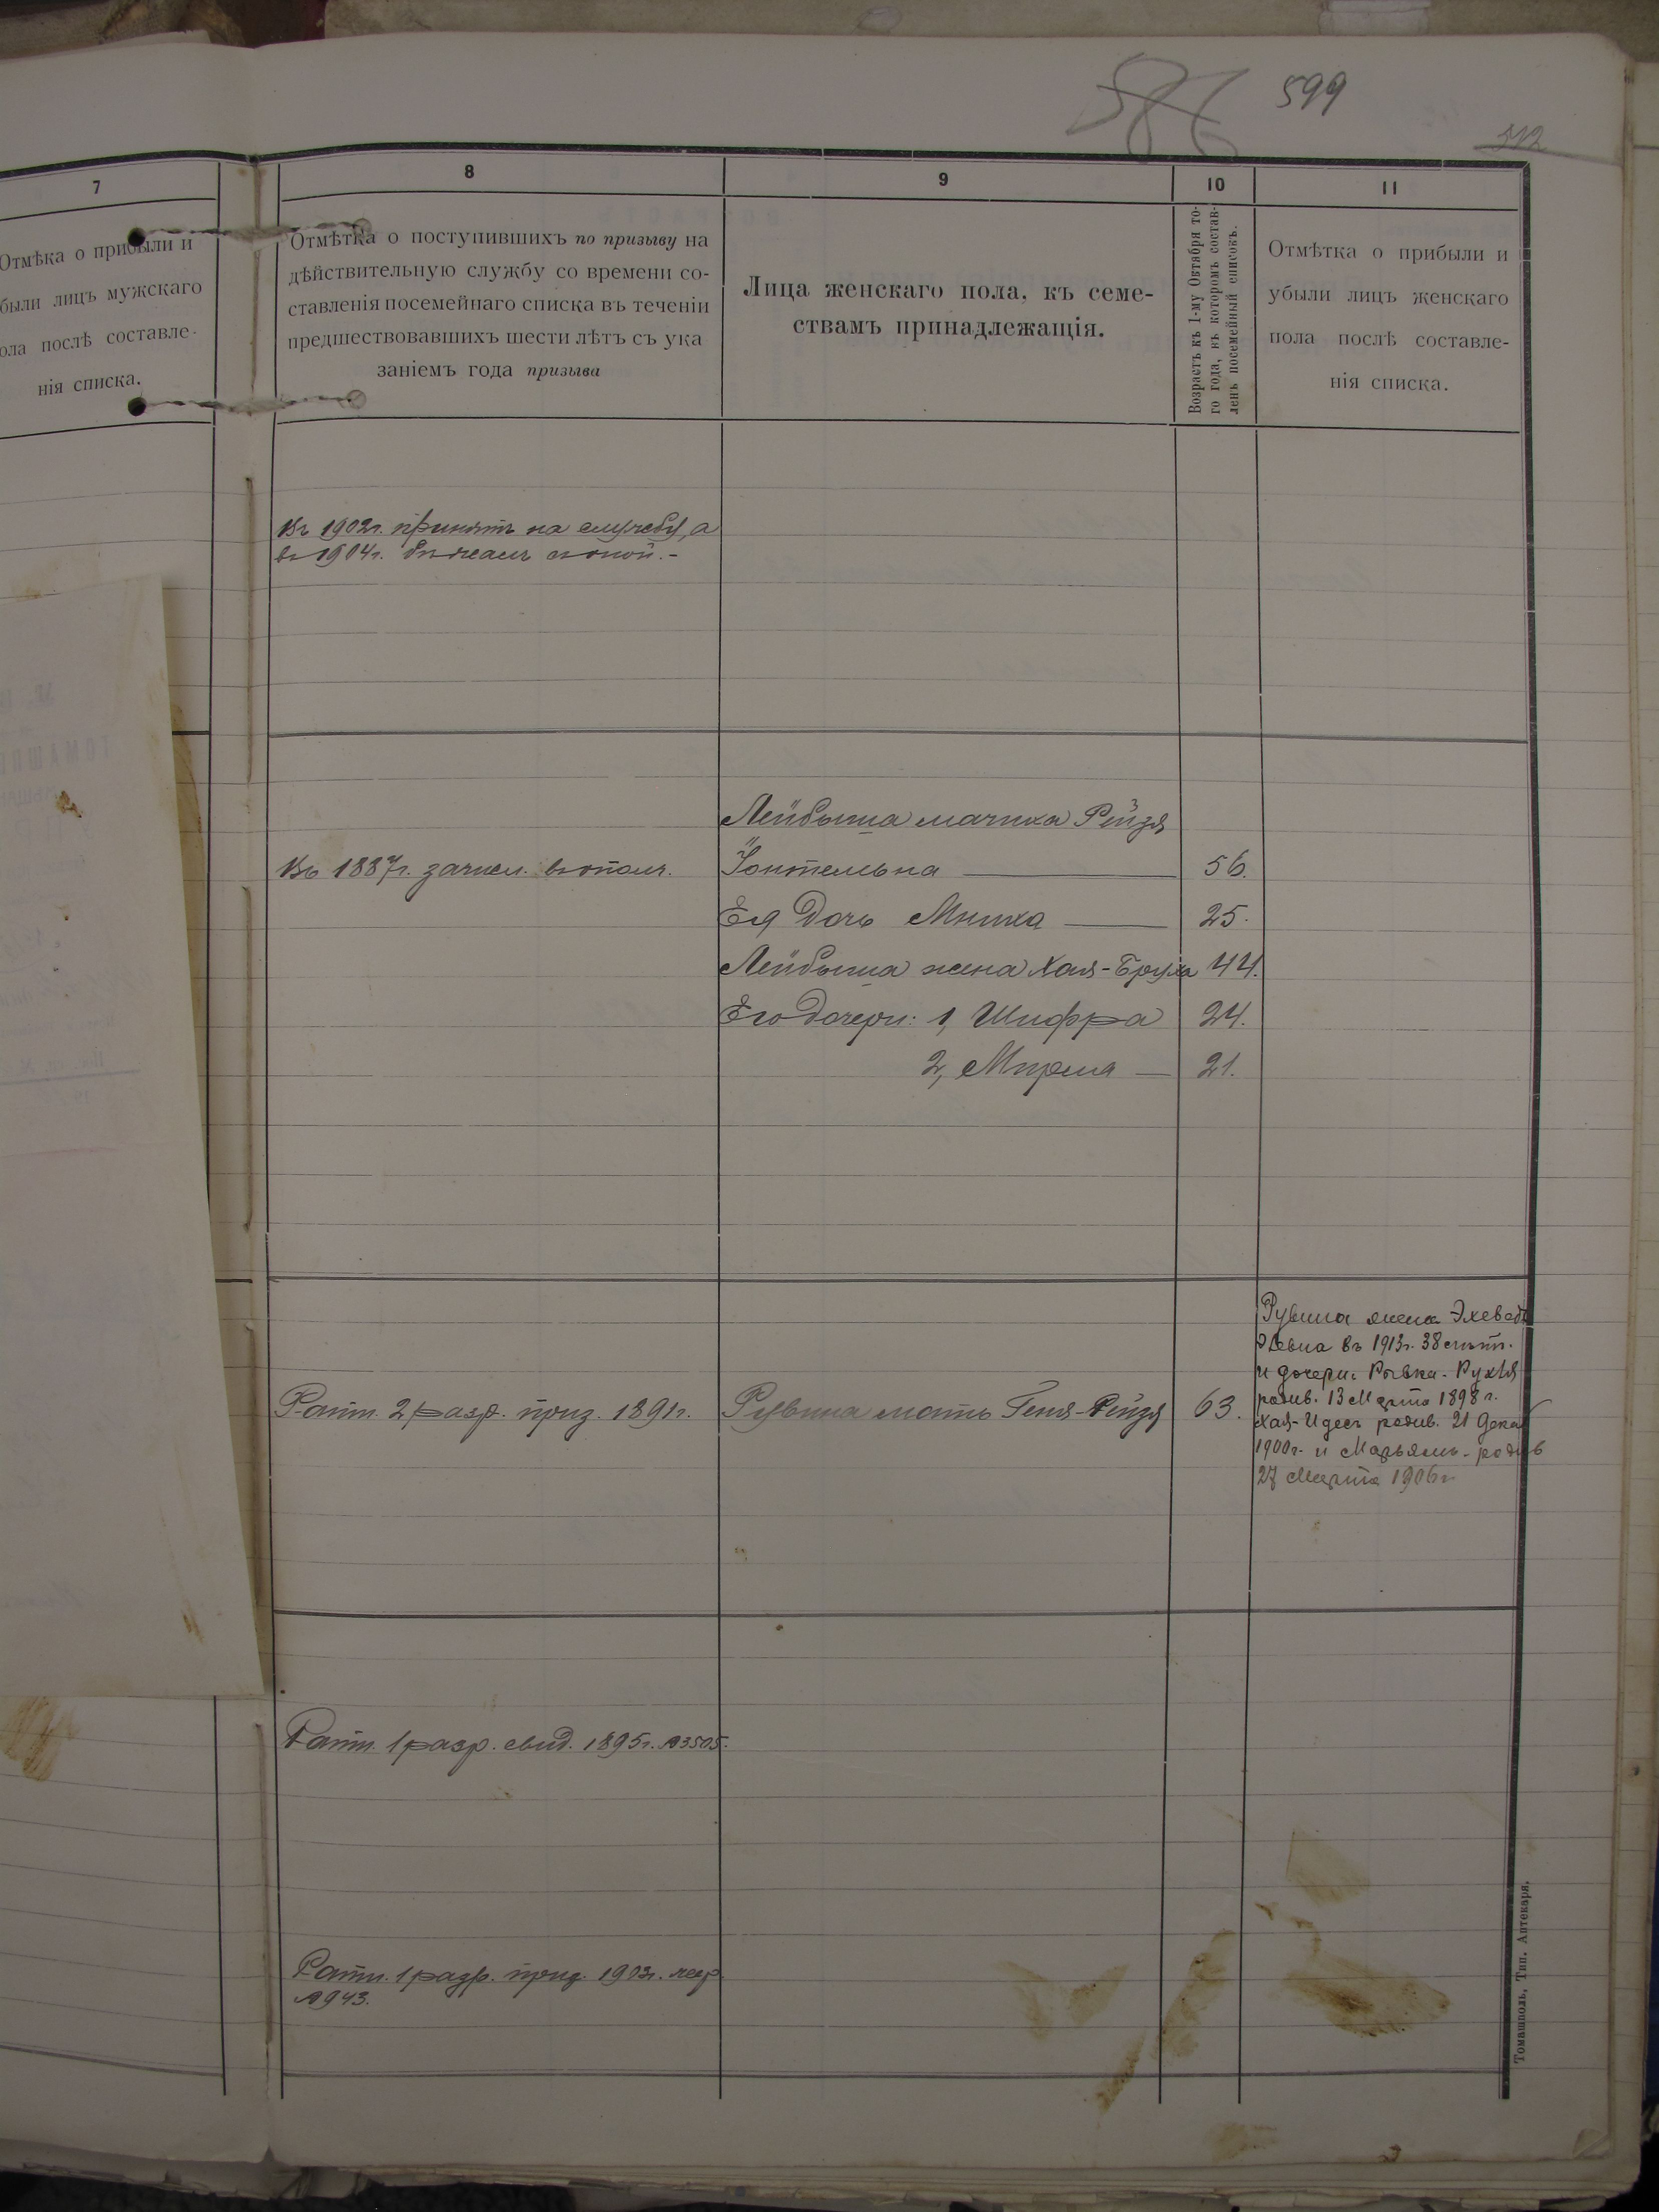 586 599
512
7
Отмѣка о прибыли и
были лицъ мужскаго
ола послѣ составле-
нія списка.
8
Отмѣтка о поступившихъ по призыву на
дѣйствительную службу со времени со-
ставленія посемейнаго списка въ теченіи
предшествовавшихъ шести лѣтъ съ ука
заніемъ года призыва
9
Лица женскаго пола, къ семе-
ствамъ принадлежащія.
10
Возрастъ къ 1-му Октября то-
го года, къ которомъ состав-
ленъ посемейный списокъ.
11
Отмѣтка о прибыли и
убыли лицъ женскаго
пола послѣ составле-
нія списка.
Въ 1902г. принятъ на службу, а
въ 1904г. бѣжалъ
Лейбыша мачиха Рейзя
Въ 1887г. зачисл. въ ополч.
Іонтельвна 56.
Ея дочь Миниха 25.
Лейбыша жена Хая-Бруха 44.
Его дочери: 1, Шифра 24.
2, Мирля 21.
Ратн. 2 разр. приз. 1891г.
Рувина мать Геня-Рейзя 63.
Рувина жена
въ 1913г. 38 лѣтъ.
и дочери: Ривка-Рухля
родив. 13 Марта 1898 г.
Хая-Идесъ родив. 21 Декаб
1900г. и Марьямъ-родив
27 Марта 1906г
Ратн. 1 разр. свид. 1895г. №3505.
Ратн. 1 разр. приз. 1903г. жер
№943.
Томашполь, Тип. Аптекаря.